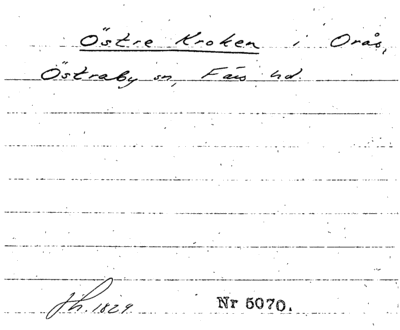 Östre Kroken i Orås,
Östraby sn, Färs hd.
Jh. 1829. Nr 5070.